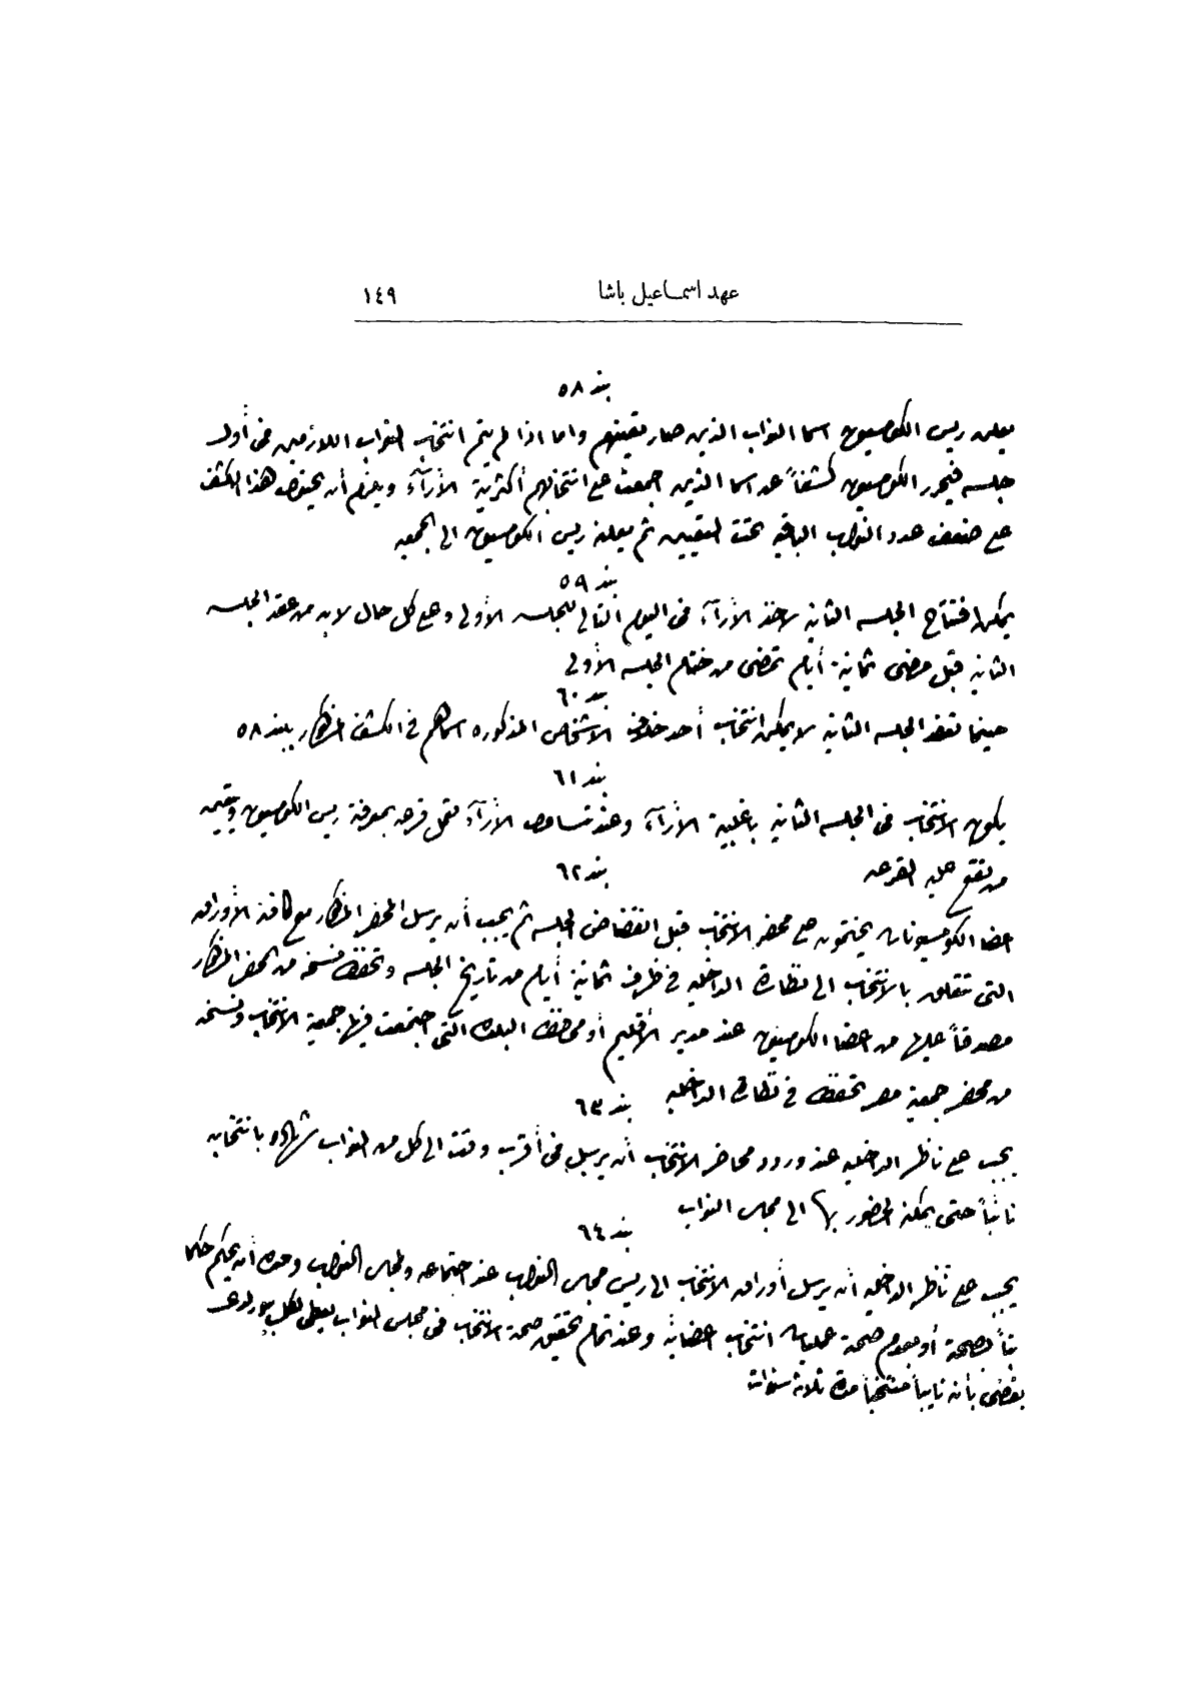 عهد اسماعيل باشا ١٤٩
بند ٥٨
يعلن ريس الكومسيون اسما النواب الذين صار تعيينهم واما اذا لم يتم انتخاب النواب اللازمين في أول
جلسه فيحرر الكومسيون كشفاً عن اسما الذين جمعت على انتخابهم أكثرية الأرآء ويلزم أن يحتوى هذا الكشف
على ضعف عدد النواب الباقيه تحت التعيين ثم يعلنه ريس الكومسيون الى الجمعيه
بند ٥٩
يمكن افتتاح الجلسه الثانيه لاخذ الأرآء في اليوم التالى للجلسه الأولى وعلى كل حال لابد من عقد الجلسه
الثانيه قبل مضى ثمانية أيام تمضى من ختام الجلسه الأولى
بند ٦٠
حينما تعقد الجلسه الثانيه لا يمكن انتخاب أحد خلاف الاشخاص المذكوره اسماهم في الكشف المذكور ببند ٥٨
بند ٦١
يكون الانتخاب في الجلسه الثانيه باغلبية الأرآء وعند تساوى الأرآء تعمل قرعه بمعرفة ريس الكومسيون ويتعين
من تقع عليه القرعه
بند ٦٢
اعضا الكومسيونات يختمون على محضر الانتخاب قبل انقضاض الجلسه ثم يجب أن يرسل المحضر المذكور مع كافة الأوراق
التى تتعلق بالانتخاب الى نظارة الداخليه في ظرف ثمانية أيام من تاريخ الجلسه وتحفظ نسخه من المحضر المذكور
مصدقاً عليها من اعضا الكومسيون عند مدير الأقليم أو محافظ البلده التى اجتمعت فيها جمعية الانتخاب ونسخه
من محضر جمعية مصر تحفظ في نظارة الداخليه
بند ٦٣
يجب على ناظر الداخليه عند ورود محاضر الانتخاب أن يرسل في أقرب وقت الى كل من النواب شهاده بانتخابه
نائباً حتى يمكنه الحضور بها الى مجلس النواب
بند ٦٤
يجب على ناظر الداخليه أن يرسل أوراق الانتخاب الى ريس مجلس النواب عند اجتماعه ولمجلس النواب وحده أن يحكم حكما
بتاً بصحة أو بعدم صحة عمليات انتخاب اعضائه وعند تمام تحقيق صحة الانتخاب في مجلس النواب يعطى لكل بيورلدى
يقضى بأنه نايباً منتخباً مدة ثلاث سنوات